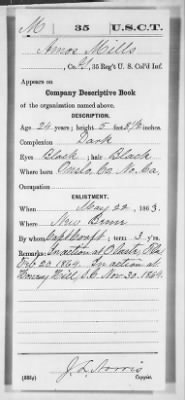 M | 35 | U.S.C.T.
Amos Mills
, Co. G, 35 Reg't U. S. Col'd Inf.
Appears on
Company Descriptive Book
of the organization named above.
DESCRIPTION.
Age 24 years; height 5 feet 8½ inches.
Complexion Dark
Eyes Black; hair Black
Where born Onslo, Co. No. Ca,
Occupation
ENLISTMENT.
When May 22, 1863.
Where New Bern
By whom Capt Croft; term 3 y'rs.
Remarks: In action at Olustee, Fla.
Feb. 20. 1864. In action at
Honey Hill, S.C. Nov. 30. 1864.
J. L. Norris
(383g) Copyist.